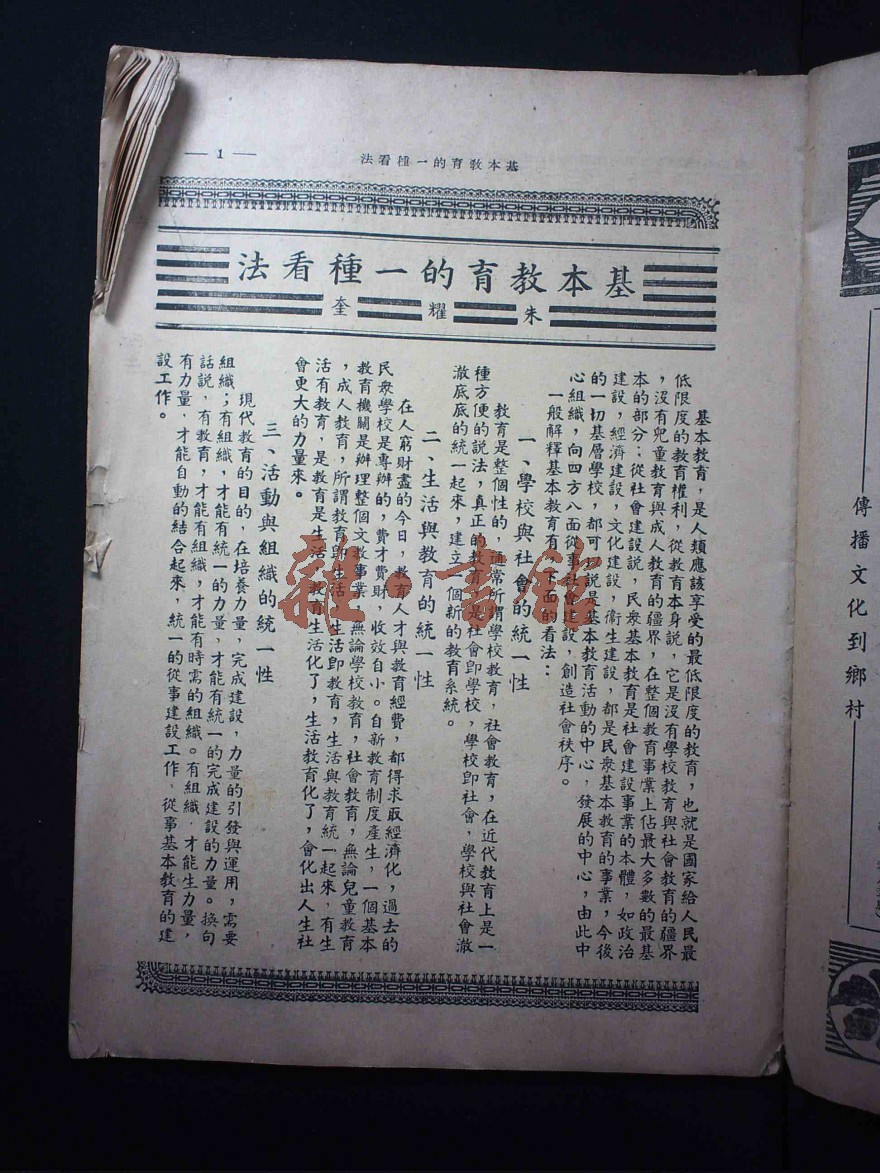 — 1 —
基本教育的一種看法
基本教育的一種看法
朱耀奎
基本教育，是人類應該享受的最低限度的教育，也就是國家給人民最
低限度的教育權利，從教育本身說，它是沒有學校教育與社會教育的疆界
，沒有兒童教育與成人教育的疆界，在整個教育事業上佔最大多數的最基
本的部分；從社會建設說，民衆基本教育是社會建設事業的本體，如政治
建設，經濟建設，文化建設，衞生建設，都是民衆基本教育的事業，今後
的一切基層學校，都可說是基本教育活動的中心，發展的中心，由此中
心組織，向四方八面從事社會建設，創造社會秩序。
一般解釋基本教育有，下面的看法：
一、學校與社會的統一性
教育是整個性的，通常所謂學校教育，社會教育，在近代教育上是一
種方便的說法，真正的教育是社會即學校，學校即社會，學校與社會澈
澈底底的統一起來，建立一個新的教育系統。
二、生活與教育的統一性
在人窮財盡的今日，教育人才與教育經費，都得求取經濟化，過去的
民衆學校是專辦的，費才費財，收效自小。自新教育制度產生，一個基本
教育機關是辦理整個文教事業，無論學校教育，社會教育，無論兒童教育
，成人教育，所謂教育即生活，生活即教育，生活與教育統一起來，有生
活有教育，是教育是生活，教育生活化了，生活教育化了，會化出人生社
會更大的力量來。
三、活動與組織的統一性
現代教育的目的，在培養力量，完成建設，力量的引發與運用，需要
組織；有組織，才能有統一的力量，才能有統一的完成建設的力量。換句
話說，有教育，才能有組織，才能有時需的組織。有組織，才能生力量，
有力量，才能自動的結合起來，統一的從事建設工作，從事基本教育的建
設工作。
雜·書館
傳播文化到鄉村